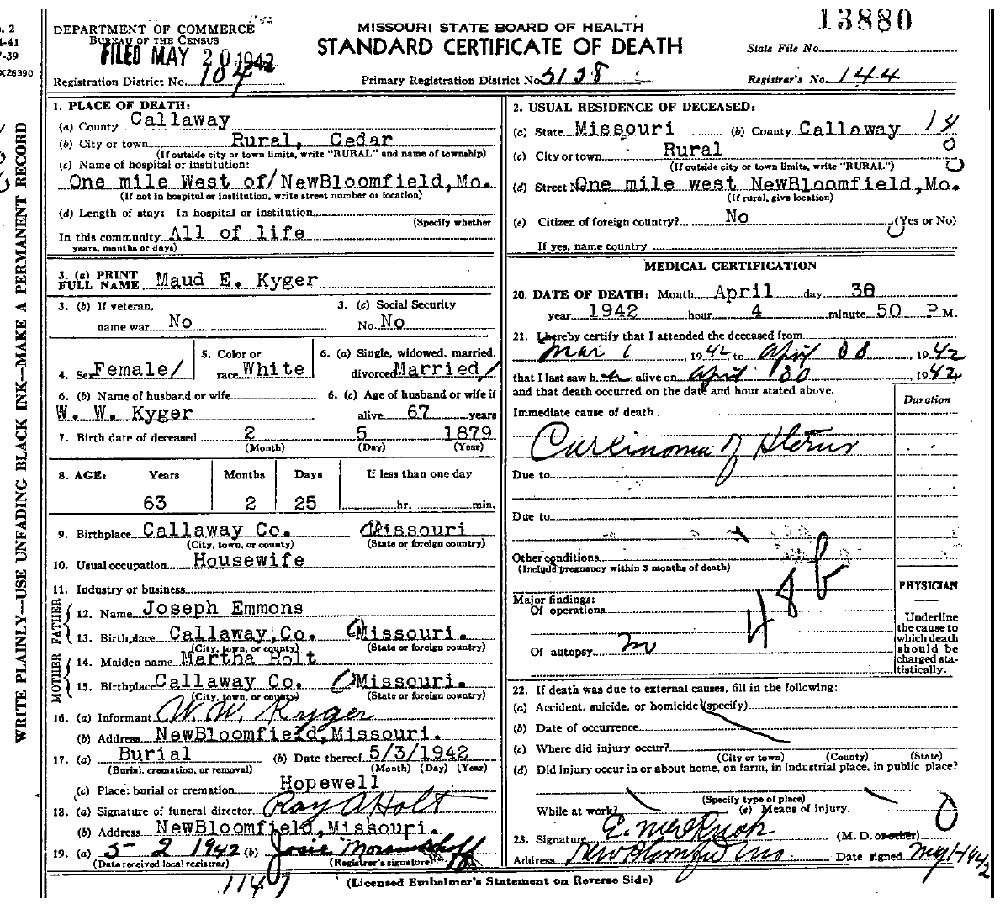 13880
DEPARTMENT OF COMMERCE
BUREAU OF THE CENSUS
FILED MAY 20 1942
MISSOURI STATE BOARD OF HEALTH
STANDARD CERTIFICATE OF DEATH
State File No.
Registration District No. 104
Primary Registration District No. 3138
Registrar's No. 144
WRITE PLAINLY—USE UNFADING BLACK INK—MAKE A PERMANENT RECORD
1. PLACE OF DEATH:
(a) County Callaway
(b) City or town Rural, Cedar
(If outside city or town limits, write "RURAL" and name of township)
(c) Name of hospital or institution:
One mile West of/NewBloomfield,Mo.
(If not in hospital or institution, write street number or location)
(d) Length of stay: In hospital or institution
(Specify whether
In this community All of life
years, months or days)
3. (a) PRINT FULL NAME Maud E. Kyger
3. (b) If veteran, name war No
3. (c) Social Security No. No
4. Sex Female/
5. Color or race White
6. (a) Single, widowed, married, divorced Married/
6. (b) Name of husband or wife
W. W. Kyger
6. (c) Age of husband or wife if alive 67 years
7. Birth date of deceased 2 5 1879
(Month) (Day) (Year)
8. AGE: Years Months Days If less than one day
63 2 25 hr. min.
9. Birthplace Callaway Co. Missouri
(City, town, or county) (State or foreign country)
10. Usual occupation Housewife
11. Industry or business
FATHER
12. Name Joseph Emmons
13. Birthplace Callaway,Co. Missouri.
(City, town, or county) (State or foreign country)
MOTHER
14. Maiden name Martha Holt
15. Birthplace Callaway Co. Missouri.
(City, town, or county) (State or foreign country)
16. (a) Informant W. W. Kyger
(b) Address NewBloomfield,Missouri.
17. (a) Burial (b) Date thereof 5/3/1942
(Burial, cremation, or removal) (Month) (Day) (Year)
(c) Place: burial or cremation Hopewell
18. (a) Signature of funeral director Ray A Holt
(b) Address NewBloomfield,Missouri.
19. (a) 5-2 1942 (b) Josie
(Date received local registrar) (Registrar's signature)
2. USUAL RESIDENCE OF DECEASED:
(a) State Missouri (b) County Callaway 14
(c) City or town Rural
(If outside city or town limits, write "RURAL")
(d) Street No. One mile west NewBloomfield,Mo.
(If rural, give location)
(e) Citizen of foreign country? No (Yes or No)
If yes, name country
MEDICAL CERTIFICATION
20. DATE OF DEATH: Month April day 30
year 1942 hour 4 minute 50 P M.
21. I hereby certify that I attended the deceased from
Mar 1 1942 to April 30 1942
that I last saw her alive on April 30 1942
and that death occurred on the date and hour stated above.
Duration
Immediate cause of death
Carcinoma of Uterus
Due to
Due to
Other conditions
(Include pregnancy within 3 months of death)
Major findings:
Of operations
48b
Of autopsy
PHYSICIAN
Underline the cause to which death should be charged statistically.
22. If death was due to external causes, fill in the following:
(a) Accident, suicide, or homicide (specify)
(b) Date of occurrence
(c) Where did injury occur?
(City or town) (County) (State)
(d) Did injury occur in or about home, on farm, in industrial place, in public place?
(Specify type of place)
While at work? (e) Means of injury.
23. Signature (M. D. or other)
Address New Bloomfield Mo. Date signed May 1-1942
(Licensed Embalmer's Statement on Reverse Side)